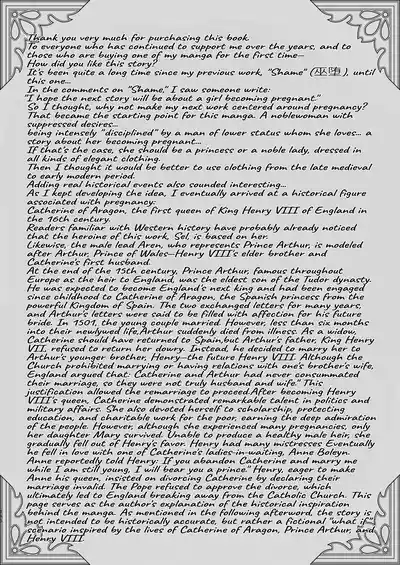 Thank you very much for purchasing this book.
To everyone who has continued to support me over the years, and to
those who are buying one of my manga for the first time—
How did you like this story?
It's been quite a long time since my previous work, "Shame" ( ), until
this one...
In the comments on "Shame," I saw someone write:
"I hope the next story will be about a girl becoming pregnant."
So I thought, why not make my next work centered around pregnancy?
That became the starting point for this manga. A noblewoman with
suppressed desires...
being intensely "disciplined" by a man of lower status whom she loves... a
story about her becoming pregnant...
If that's the case, she should be a princess or a noble lady, dressed in
all kinds of elegant clothing.
Then I thought it would be better to use clothing from the late medieval
to early modern period.
Adding real historical events also sounded interesting...
As I kept developing the idea, I eventually arrived at a historical figure
associated with pregnancy:
Catherine of Aragon, the first queen of King Henry VIII of England in
the 16th century.
Readers familiar with Western history have probably already noticed
that the heroine of this work, Sol, is based on her.
Likewise, the male lead Aren, who represents Prince Arthur, is modeled
after Arthur, Prince of Wales—Henry VIII's elder brother and
Catherine's first husband.
At the end of the 15th century, Prince Arthur, famous throughout
Europe as the heir to England, was the eldest son of the Tudor dynasty.
He was expected to become England's next king and had been engaged
since childhood to Catherine of Aragon, the Spanish princess from the
powerful Kingdom of Spain. The two exchanged letters for many years,
and Arthur's letters were said to be filled with affection for his future
bride. In 1501, the young couple married. However, less than six months
into their newlywed life,Arthur suddenly died from illness. As a widow,
Catherine should have returned to Spain,but Arthur's father, King Henry
VII, refused to return her dowry. Instead, he decided to marry her to
Arthur's younger brother, Henry—the future Henry VIII. Although the
Church prohibited marrying or having relations with one's brother's wife,
England argued that: Catherine and Arthur had never consummated
their marriage, so they were not truly husband and wife." This
justification allowed the remarriage to proceed.After becoming Henry
VIII's queen, Catherine demonstrated remarkable talent in politics and
military affairs. She also devoted herself to scholarship, protecting
education, and charitable work for the poor, earning the deep admiration
of the people. However, although she experienced many pregnancies, only
her daughter Mary survived. Unable to produce a healthy male heir, she
gradually fell out of Henry's favor. Henry had many mistresses Eventually
he fell in love with one of Catherine's ladies-in-waiting, Anne Boleyn.
Anne reportedly told Henry: If you abandon Catherine and marry me
while I am still young, I will bear you a prince." Henry, eager to make
Anne his queen, insisted on divorcing Catherine by declaring their
marriage invalid. The Pope refused to approve the divorce, which
ultimately led to England breaking away from the Catholic Church. This
page serves as the author's explanation of the historical inspiration
behind the manga. As mentioned in the following afterword, the story is
not intended to be historically accurate, but rather a fictional "what if"
scenario inspired by the lives of Catherine of Aragon, Prince Arthur, and
Henry VIII.